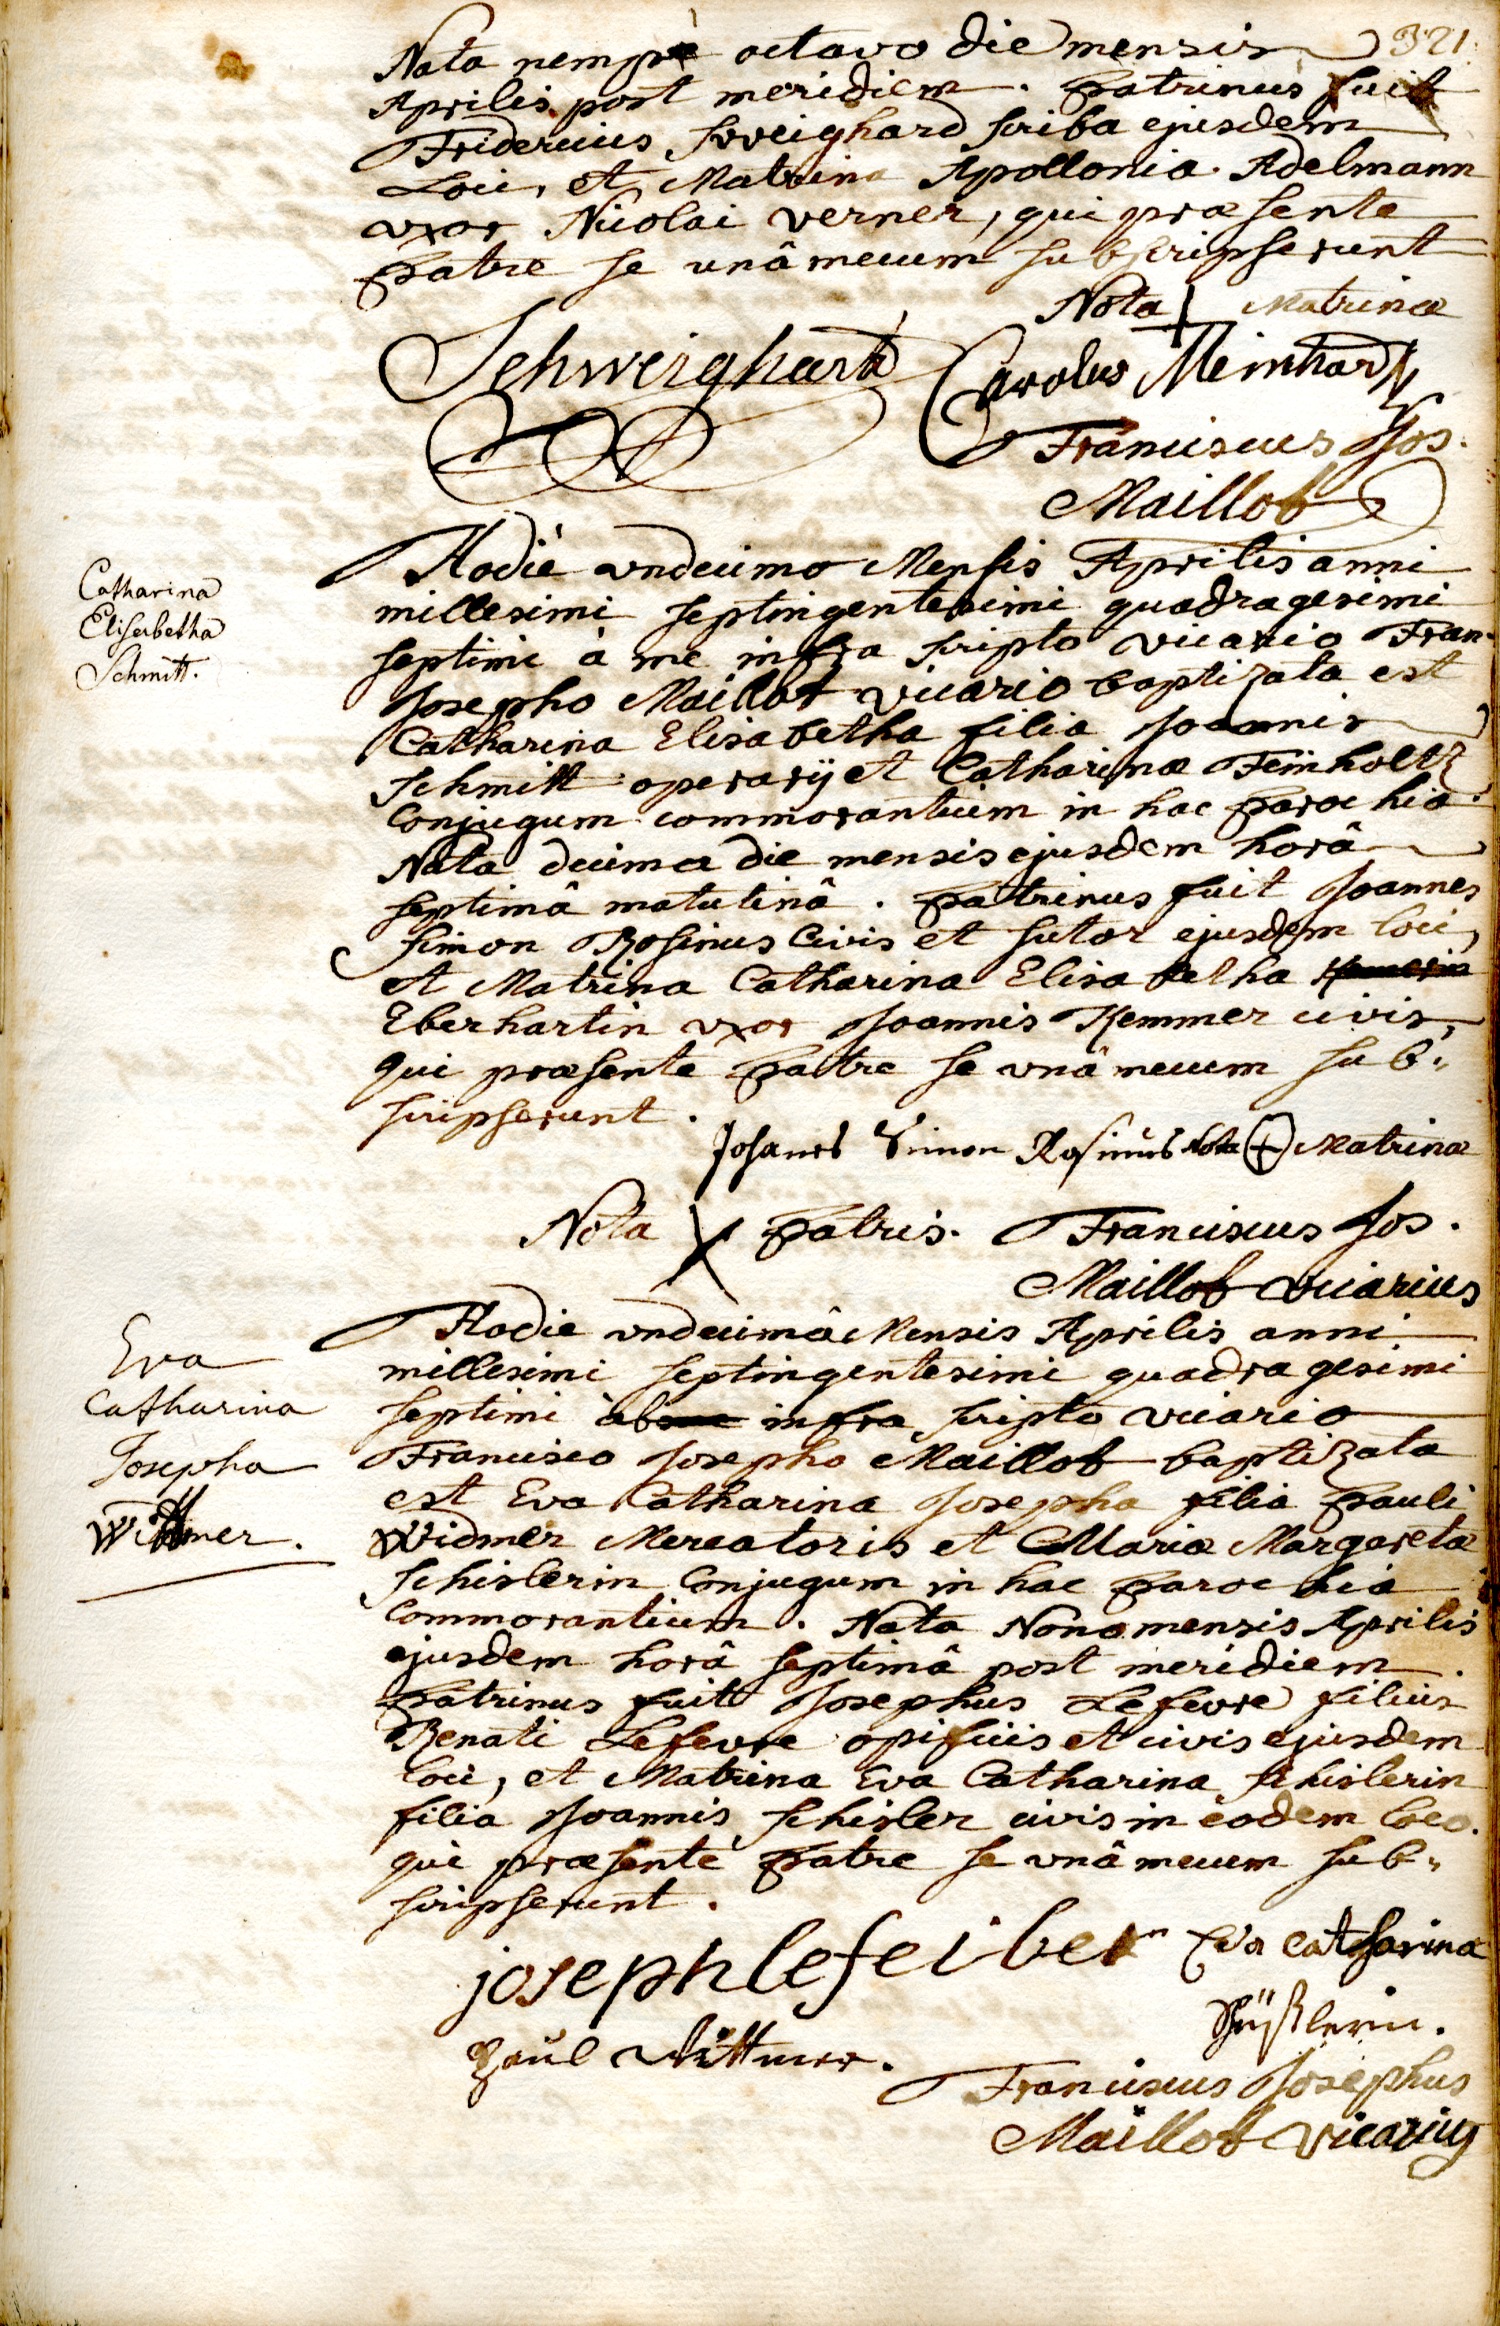 321.
Nata nempè octavo die mensis
Aprilis post meridiem. Patrinus fuit
Fridericus Sweighard scriba ejusdem
Loci, et Matrina Apollonia Adelmann
uxor Nicolai verner, qui præsente
Patre se unâ mecum subscripserunt
Nota + Matrinæ
Schweighart Carolus Meinhard
Franciscus Jos.
Maillot
Catharina
Elisabetha
Schmitt.
Hodiè undecimo Mensis Aprilis anni
millesimi septingentesimi quadragesimi
septimi à me infra scripto vicario Fran.
Josepho Maillot vicario baptizata est
Catharina Elisabetha filia Joannis
Schmitt operarij et Catharinæ Feinholtz
Conjugum commorantium in hac Parochia.
Nata decima die mensis ejusdem horâ
septimâ matutinâ. Patrinus fuit Joannes
Simon Rosinus Civis et sutor ejusdem loci,
et Matrina Catharina Elisabetha
Eberhartin uxor Joannis Kemmer civis,
qui præsente Patre se unâ mecum sub:
scripserunt.
Johanes Simon Rosinus Nota (+) Matrinæ
Nota X Patris. Franciscus Jos.
Maillot vicarius
Eva
Catharina
Josepha
Wittmer.
Hodie undecimâ Mensis Aprilis anni
millesimi septingentesimi quadragesimi
septimi ab infra scripto vicario
Francisco Josepho Maillot baptizata
est Eva Catharina Josepha filia Pauli
Widmer Mercatoris et Mariæ Margaretæ
Schislerin Conjugum in hac Parochia
Commorantium. Nata Nona mensis Aprilis
ejusdem horâ septimâ post meridiem.
Patrinus fuit Josephus Lefevre filius
Renati Lefevre opificis et civis ejusdem
loci, et Matrina Eva Catharina Schislerin
filia Joannis Schisler civis in eodem loco.
qui præsente Patre se unâ mecum sub:
scripserunt.
joseph lefeiber Eva Catharina
Schüßlerin.
Paul Wittmer.
Franciscus Josephus
Maillot vicarius